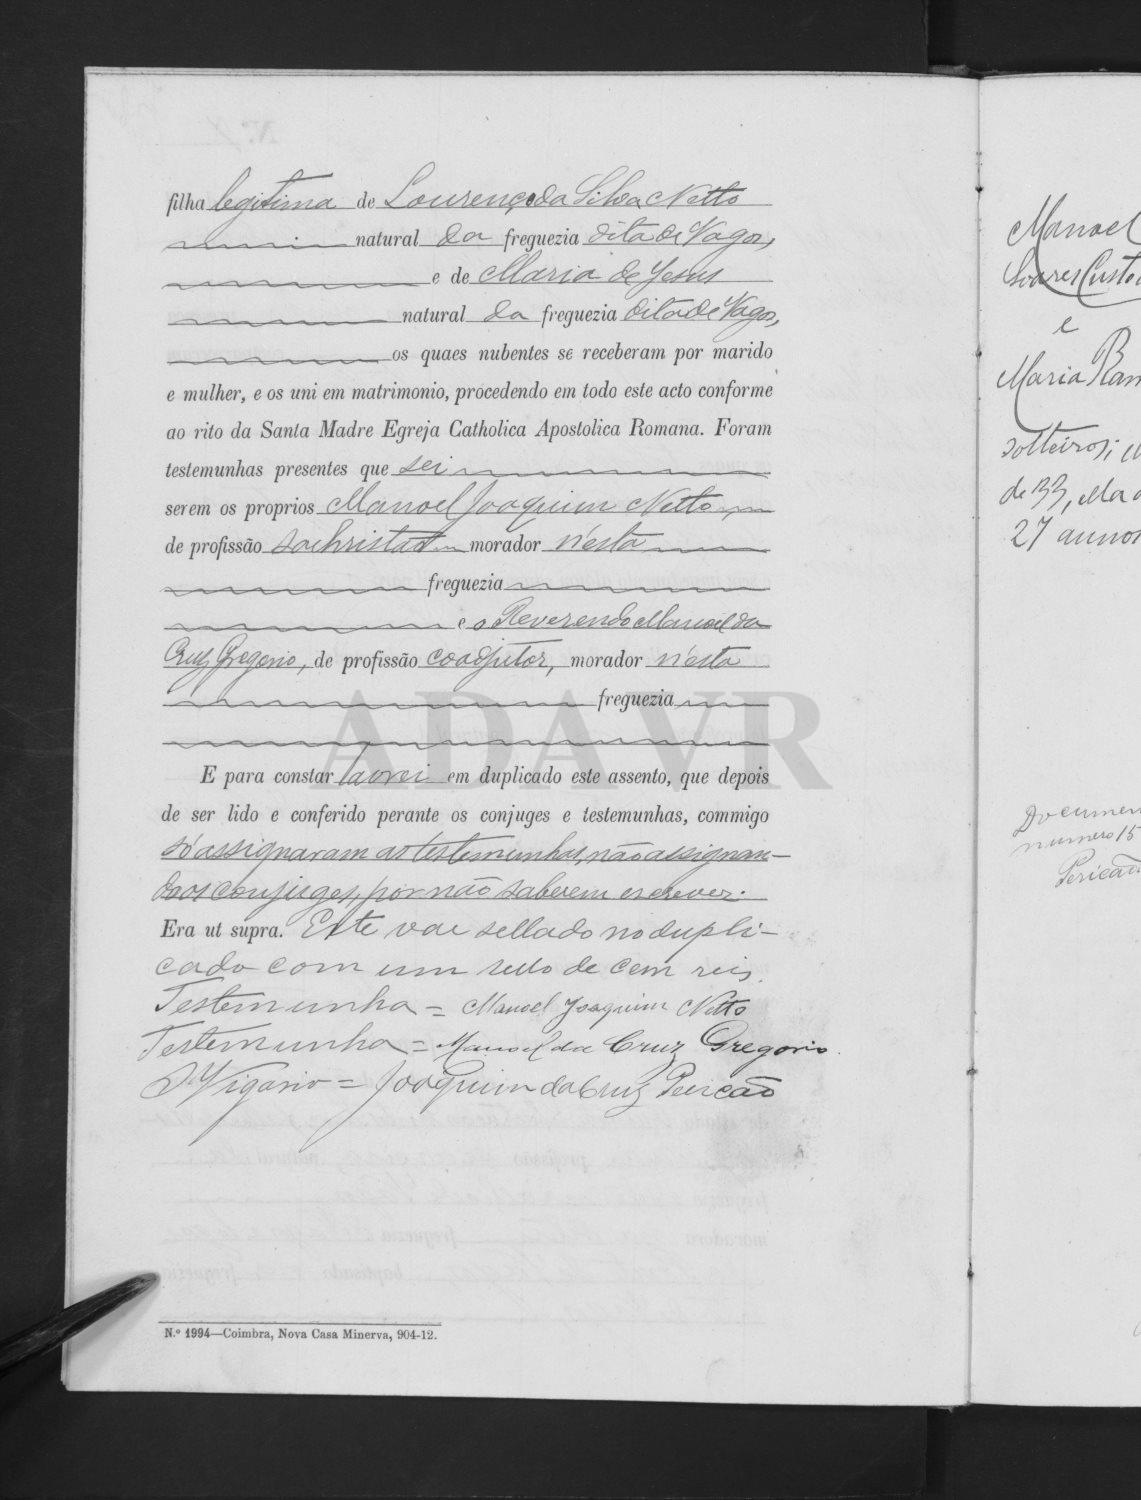 filha legitima de Lourenço da Silva Netto
natural da freguezia dita de Vagos,
e de Maria de Jesus
natural da freguezia dita de Vagos,
os quaes nubentes se receberam por marido
e mulher, e os uni em matrimonio, procedendo em todo este acto conforme
ao rito da Santa Madre Egreja Catholica Apostolica Romana. Foram
testemunhas presentes que sei
serem os proprios Manoel Joaquim Netto,
de profissão sachristão morador n'esta
freguezia
e o Reverendo Manoel da
Cruz Gregorio, de profissão coadjutor, morador n'esta
freguezia
E para constar lavrei em duplicado este assento, que depois
de ser lido e conferido perante os conjuges e testemunhas, commigo
só assignaram as testemunhas, não assignan-
do os conjuges, por não saberem escrever.
Era ut supra. Este vae sellado no dupli-
cado com um sello de cem reis.
Testemunha = Manoel Joaquim Netto
Testemunha = Manoel da Cruz Gregorio.
O Vigario = Joaquim da Cruz Pericão
N.º 1994—Coimbra, Nova Casa Minerva, 904-12.
ADAVR
Manoel
Soares Custo
e
Maria Ram
solteiros;
de 33, ella
27 annos
Documen
numero 15
Pericão